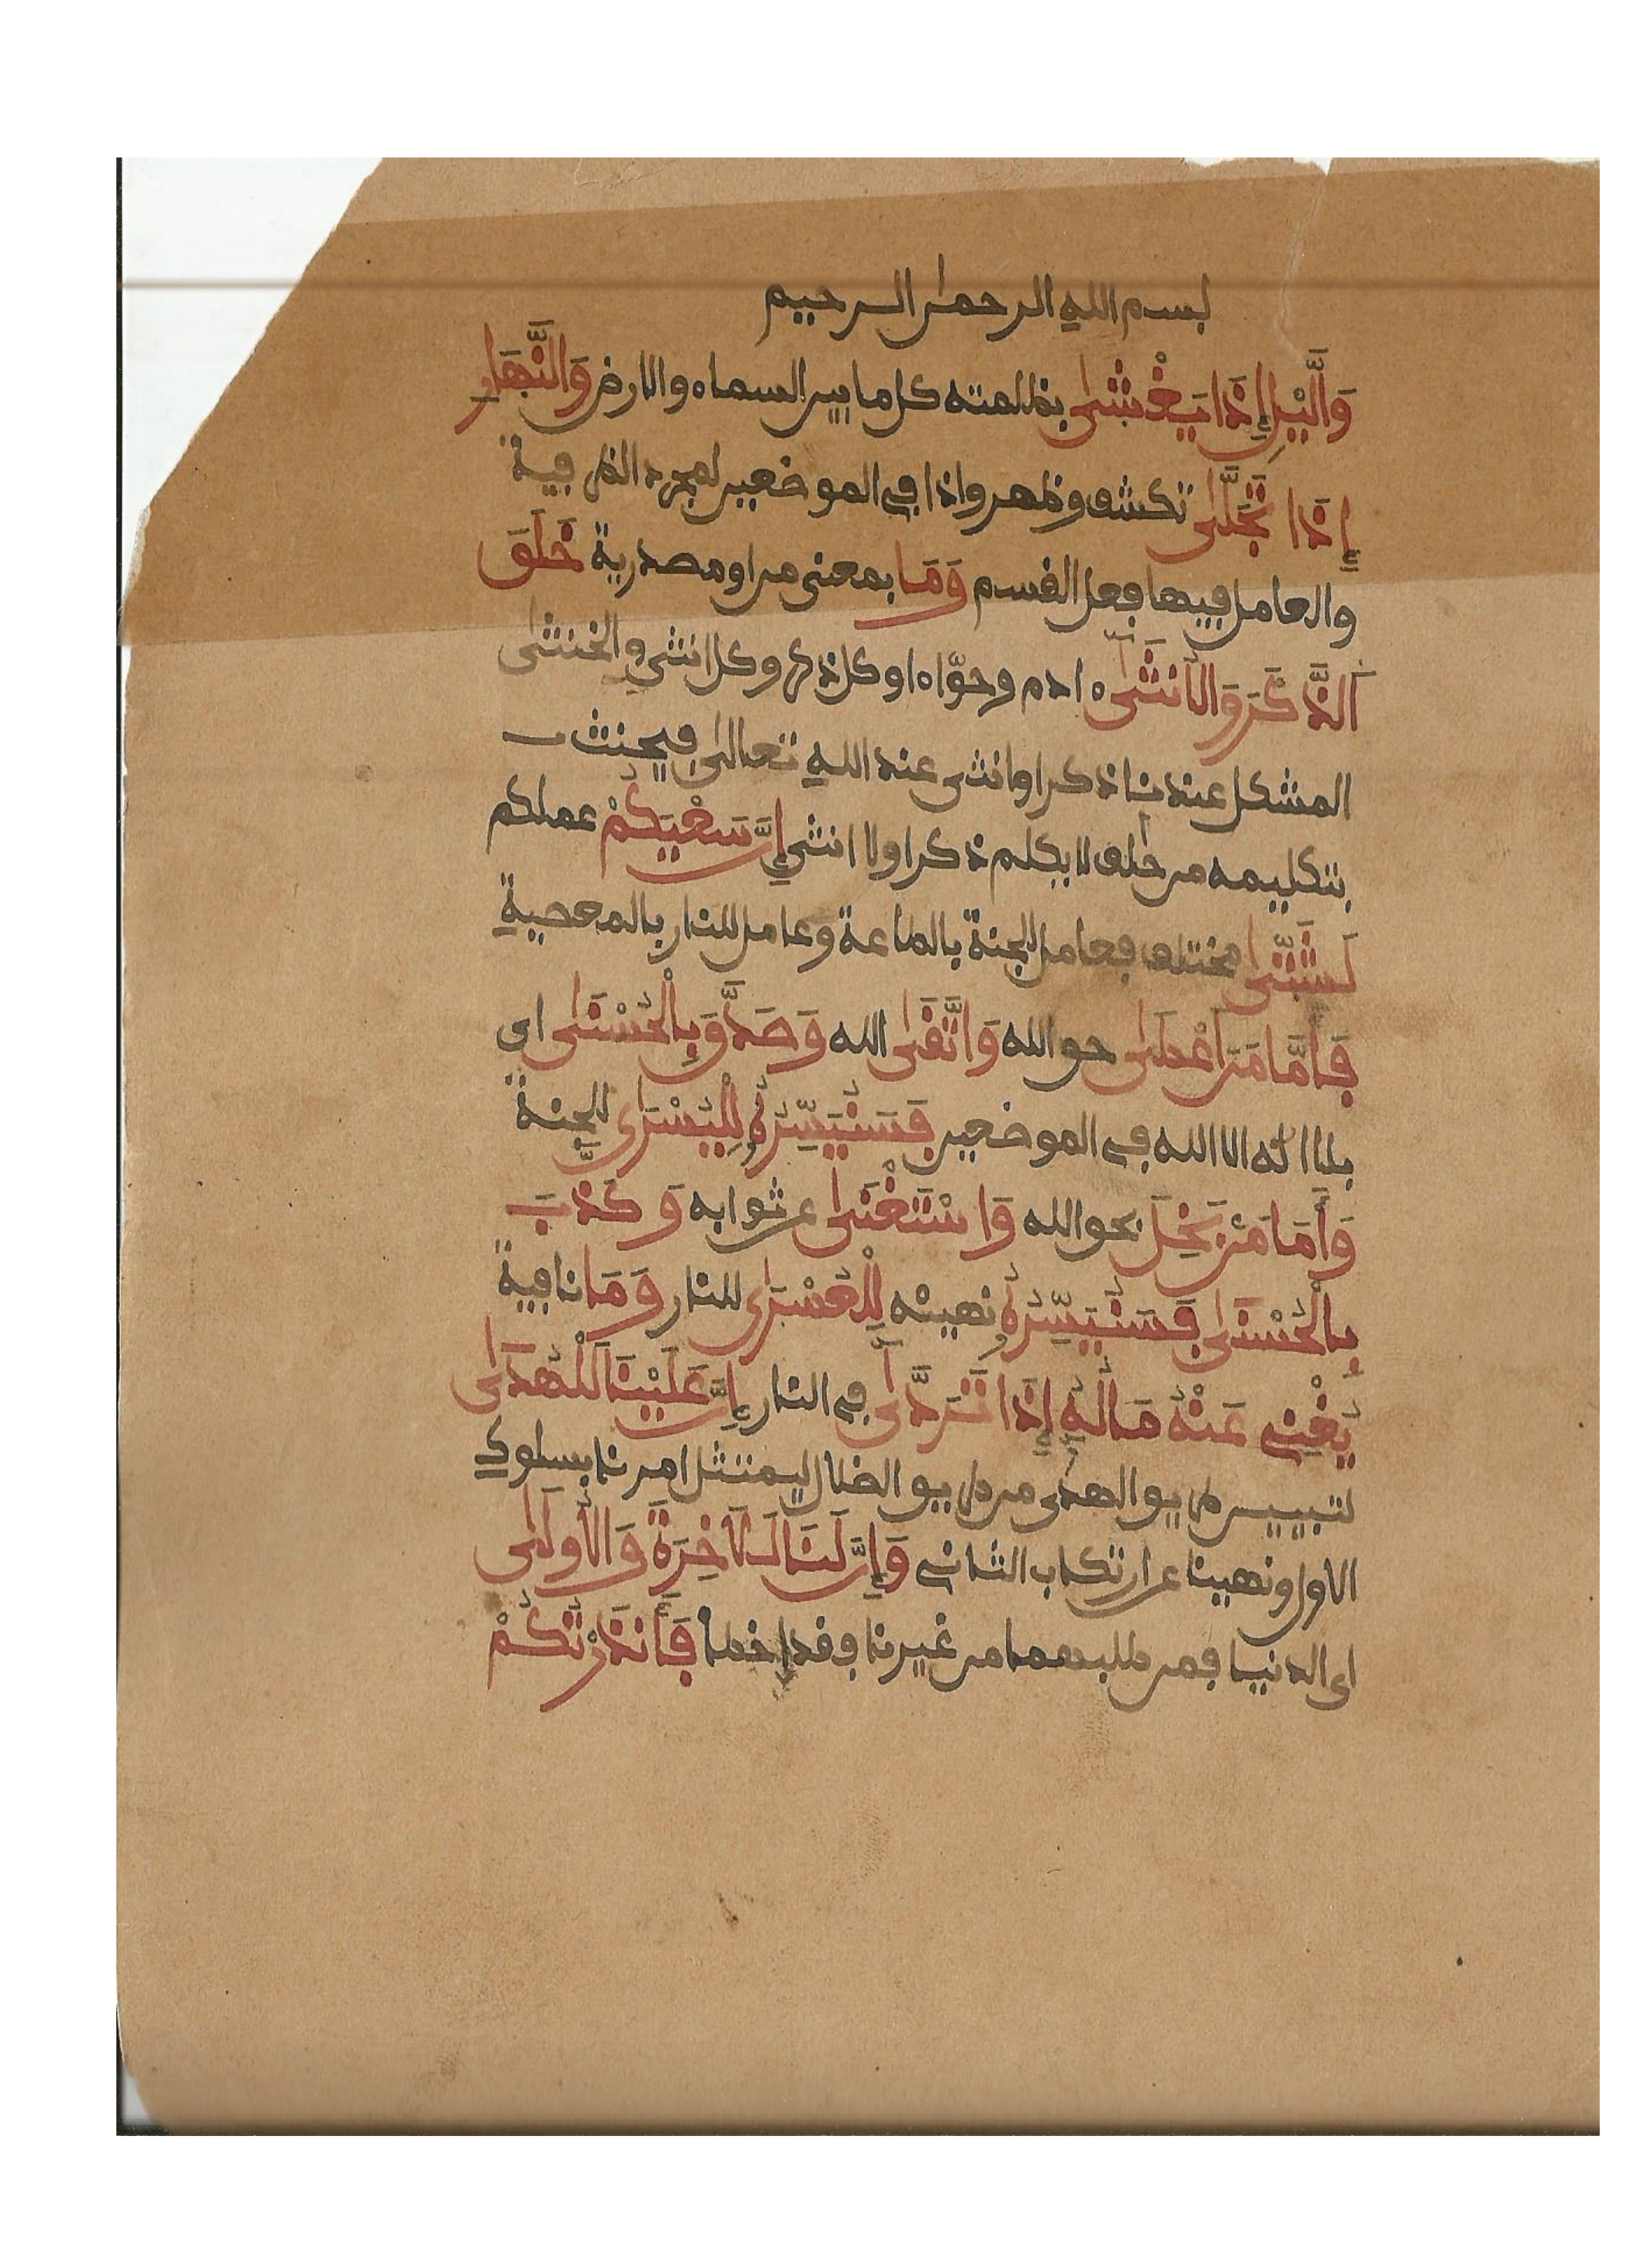 بسم الله الرحمن الرحيم
وَالَّيْلِ إِذَا يَغْشَىٰ بظلمته كل ما بين السماء والارض وَالنَّهَارِ
إِذَا تَجَلَّىٰ تكشف وظهر واذا في الموضعين لمجرد الظرفية
والعامل فيها فعل القسم وَمَا بمعنى من او مصدرية خَلَقَ
اَلذَّكَرَ وَالْأُنثَىٰ ءادم وحوّاء او كل ذكر وكل انثى والخنثى
المشكل عندنا ذكر او انثى عند الله تعالى فيحنث
بتكليمه من حلف لا يكلم ذكرا ولا انثى إِنَّ سَعْيَكُمْ عملكم
لَشَتَّىٰ مختلف فعامل للجنة بالطاعة وعامل للنار بالمعصية
فَأَمَّا مَنَ اَعْطَىٰ حق الله وَاتَّقَىٰ الله وَصَدَّقَ بِالْحُسْنَىٰ اى
بلا اله الا الله في الموضعين فَسَنُيَسِّرُهُ لِلْيُسْرَىٰ للجنة
وَأَمَا مَنْ بَخِلَ بحق الله وَاسْتَغْنَىٰ عن ثوابه وَكَذَّبَ
بِالْحُسْنَىٰ فَسَنُيَسِّرُهُ نهيئه لِلْعُسْرَىٰ للنار وَمَا نافية
يُغْنِي عَنْهُ مَالُهُ إِذَا تَرَدَّىٰ في النار إِنَّ عَلَيْنَا لَلْهُدَىٰ
لتبيين طريق الهدى من طريق الضلال ليمتثل امرنا بسلوك
الاول ونهينا عن ارتكاب الثاني وَإِنَّ لَنَا لَلْآخِرَةَ وَالْأُولَىٰ
اى الدنيا فمن طلبهما من غيرنا فقد اخطأ فَأَنذَرْتُكُمْ